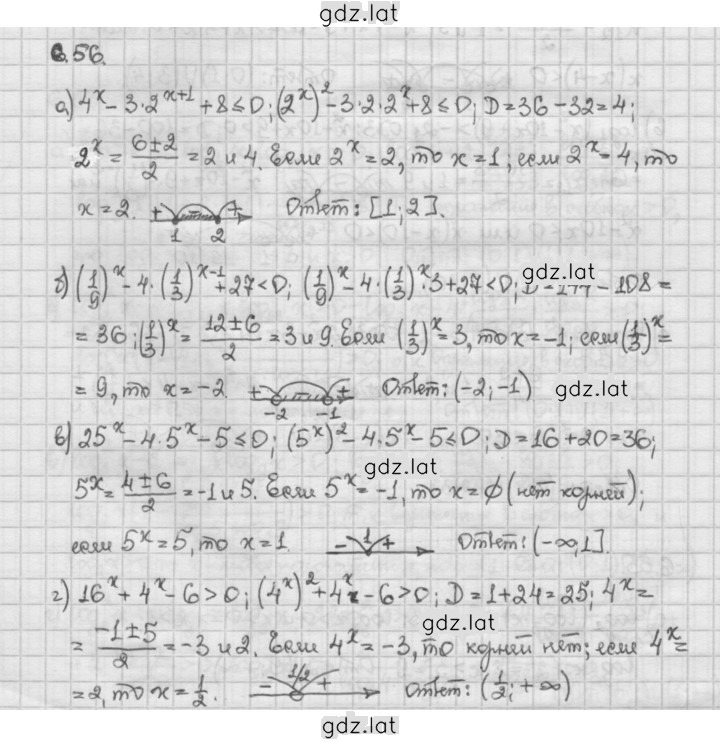 gdz.lat
6.56.
а) 4^x - 3·2^{x+1} + 8 ≤ 0; (2^x)^2 - 3·2·2^x + 8 ≤ 0; D = 36 - 32 = 4;
2^x = \frac{6±2}{2} = 2 и 4. Если 2^x = 2, то x = 1; если 2^x = 4, то
x = 2. + - + 1 2 Ответ: [1; 2].
gdz.lat
б) (\frac{1}{9})^x - 4·(\frac{1}{3})^{x-1} + 27 < 0; (\frac{1}{9})^x - 4·(\frac{1}{3})^x·3 + 27 < 0; D = 144 - 108 =
= 36; (\frac{1}{3})^x = \frac{12±6}{2} = 3 и 9. Если (\frac{1}{3})^x = 3, то x = -1; если (\frac{1}{3})^x =
= 9, то x = -2. + - + -2 -1 Ответ: (-2; -1)
gdz.lat
в) 25^x - 4·5^x - 5 ≤ 0; (5^x)^2 - 4·5^x - 5 ≤ 0; D = 16 + 20 = 36;
gdz.lat
5^x = \frac{4±6}{2} = -1 и 5. Если 5^x = -1, то x = ∅ (нет корней);
если 5^x = 5, то x = 1. - 1 + Ответ: (-∞; 1].
г) 16^x + 4^x - 6 > 0; (4^x)^2 + 4^x - 6 > 0; D = 1 + 24 = 25; 4^x =
gdz.lat
= \frac{-1±5}{2} = -3 и 2. Если 4^x = -3, то корней нет; если 4^x =
= 2, то x = \frac{1}{2}. - 1/2 + Ответ: (\frac{1}{2}; +∞)
gdz.lat
gdz.lat